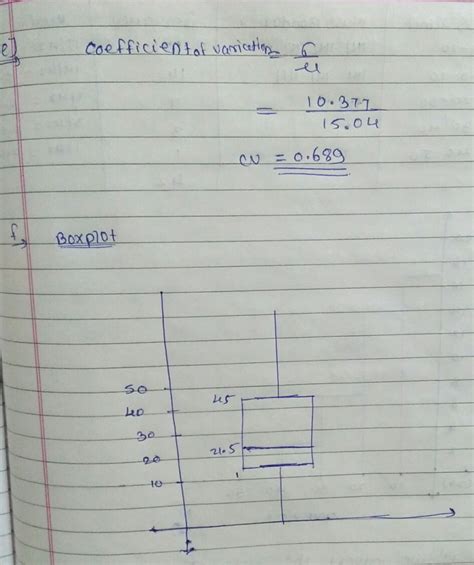 e] Coefficient of variation = σ/μ
= 10.377/15.04
CV = 0.689
f, Boxplot
50
45
40
30
21.5
20
1
10